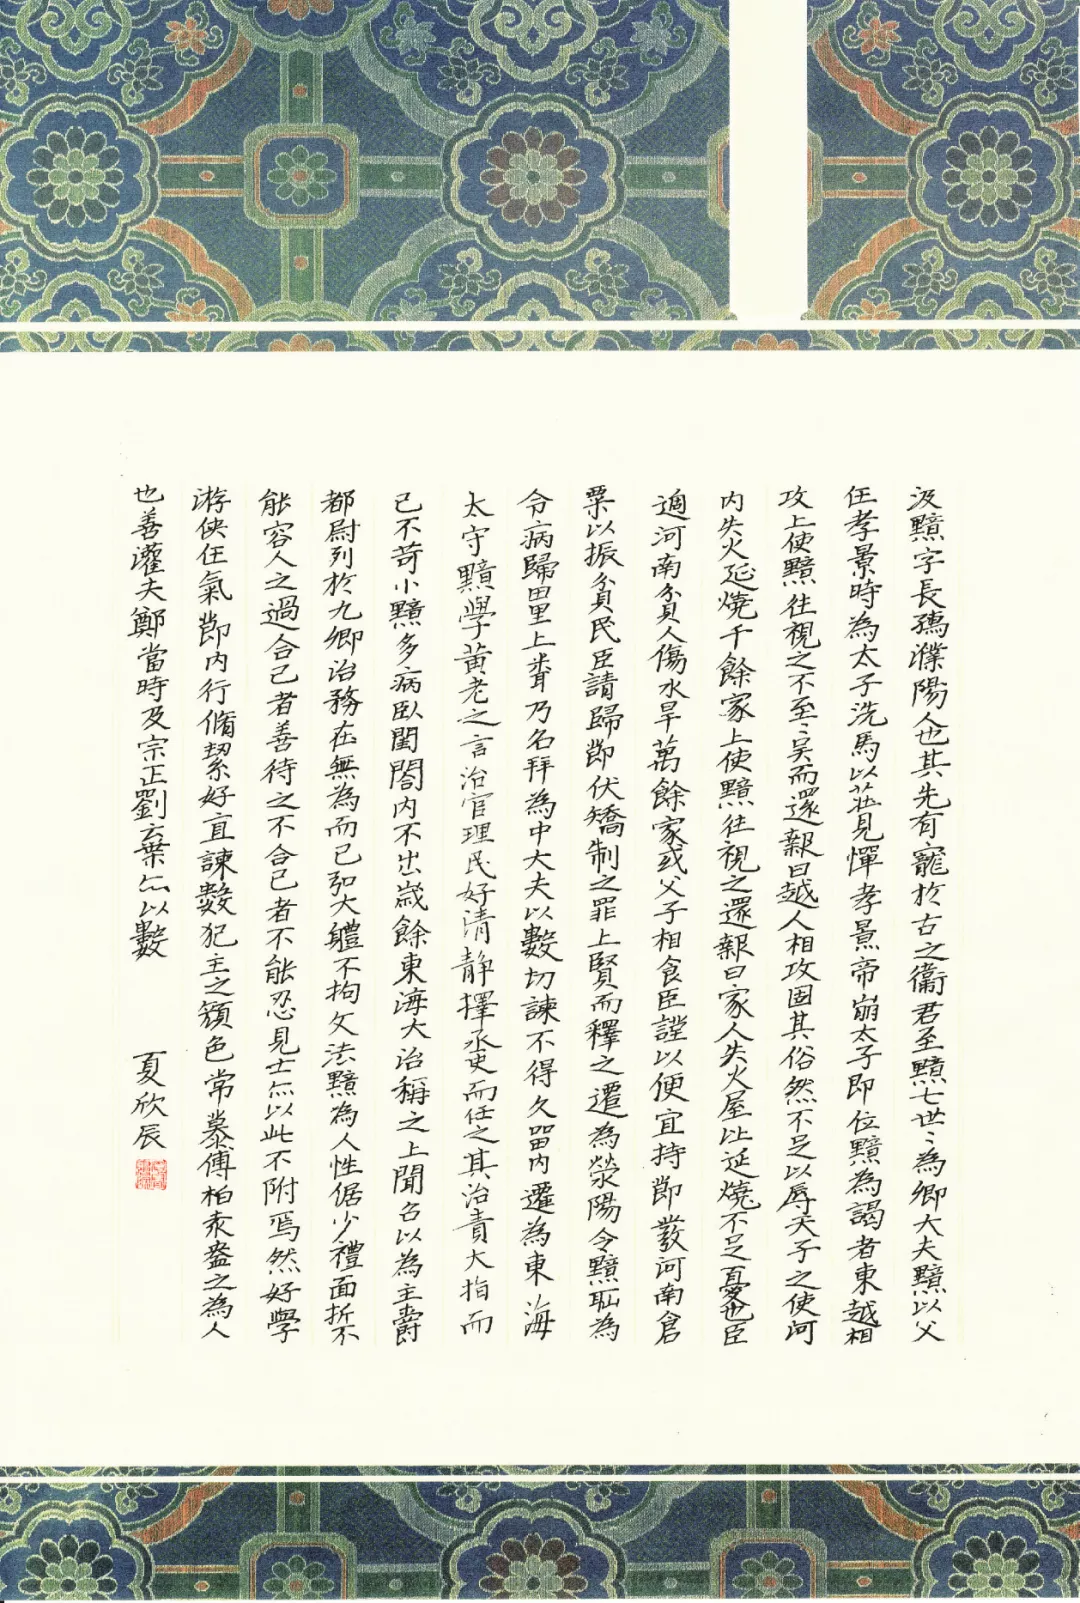 汲黯字長孺濮陽人也其先有寵於古之衞君至黯七世〻為卿大夫黯以父
任孝景時為太子洗馬以莊見憚孝景帝崩太子即位黯為謁者東越相
攻上使黯往視之不至〻吳而還報曰越人相攻固其俗然不足以辱天子之使河
内失火延燒千餘家上使黯往視之還報曰家人失火屋比延燒不足憂也臣
過河南貧人傷水旱萬餘家或父子相食臣謹以便宜持節發河南倉
粟以振貧民臣請歸節伏矯制之罪上賢而釋之遷為滎陽令黯恥為
令病歸田里上聞乃召拜為中大夫以數切諫不得久留内遷為東海
太守黯學黃老之言治官理民好清静擇丞吏而任之其治責大指而
已不苛小黯多病臥閨閤内不出歲餘東海大治稱之上聞召以為主爵
都尉列於九卿治務在無為而已弘大體不拘文法黯為人性倨少禮面折不
能容人之過合己者善待之不合己者不能忍見士亦以此不附焉然好學
游俠任氣節内行脩絜好直諫數犯主之顏色常慕傅柏袁盎之為人
也善灌夫鄭當時及宗正劉棄亦以數 夏欣辰